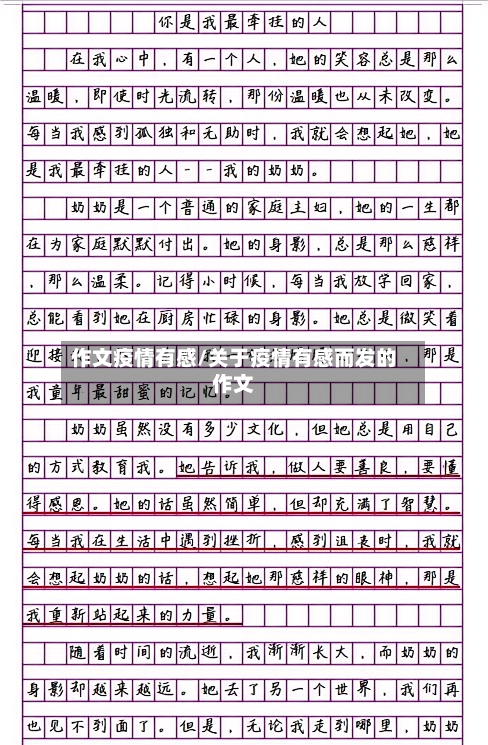 你是我最牵挂的人
在我心中，有一个人，她的笑容总是那么
温暖，即使时光流转，那份温暖也从未改变。
每当我感到孤独和无助时，我就会想起她，她
是我最牵挂的人--我的奶奶。
奶奶是一个普通的家庭主妇，她的一生都
在为家庭默默付出。她的身影，总是那么慈祥
，那么温柔。记得小时候，每当我放学回家，
总能看到她在厨房忙碌的身影。她总是微笑着
迎接
，那是
作文疫情有感/关于疫情有感而发的
作文
我童年最甜蜜的记忆。
奶奶虽然没有多少文化，但她总是用自己
的方式教育我。她告诉我，做人要善良，要懂
得感恩。她的话虽然简单，但却充满了智慧。
每当我在生活中遇到挫折，感到沮丧时，我就
会想起奶奶的话，想起她那慈祥的眼神，那是
我重新站起来的力量。
随着时间的流逝，我渐渐长大，而奶奶的
身影却越来越远。她去了另一个世界，我们再
也见不到面了。但是，无论我走到哪里，奶奶